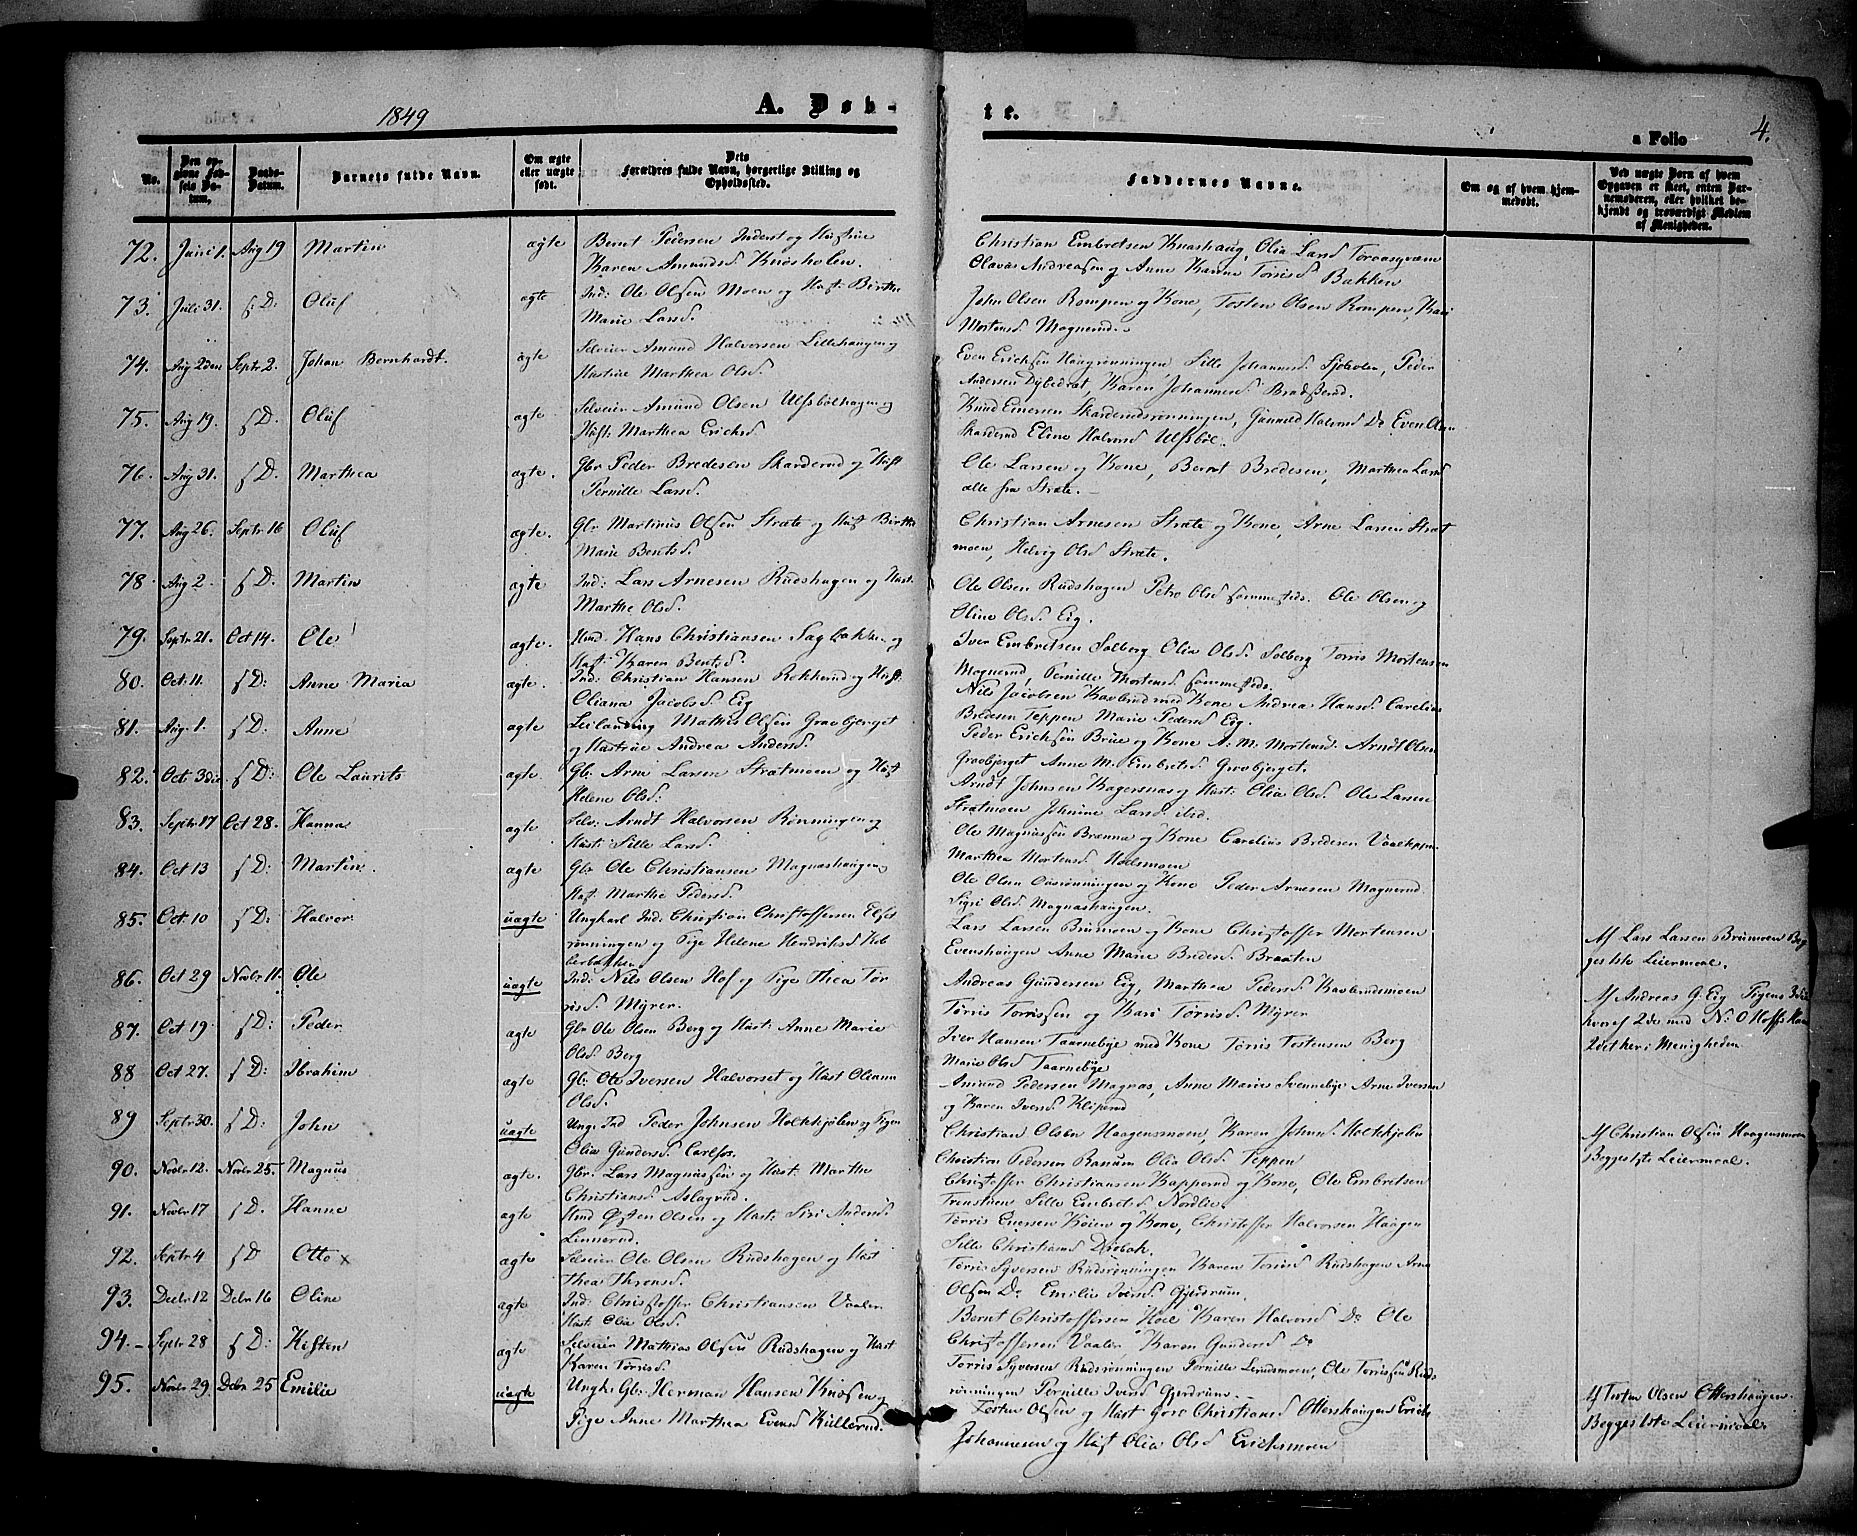 1849
A. Døb-
te.
a Folio
4.
No.
Den opgivne Fødsels Datum.
Daabs-Datum.
Barnets fulde Navn.
Om ægte eller uægte født.
Dets Forældres fulde Navn, borgerlige Stilling og Opholdssted.
Faddernes Navne.
Om og af hvem hjemmedøbt.
Ved uægte Børn af hvem Opgaven er skeet, enten Barnemoderen, eller hvilket bekjendt og troværdigt Medlem af Menigheden.
72. Juni 1. Aug 19 Martin ægte Bernt Pedersen Inderst og Hustrue
Karen Amundsd. Knosholen.
Christian Embretsen Knashaug, Olia Larsd
Olavas Andreasen og Anne Karine Torrisd. Bakken
73. Juli 31. s D: Oluf ægte Ind: Ole Olsen Moen og Hust: Birthe
Marie Larsd.
John Olsen Rompen og Kone, Tosten Olsen Rompen, Kari
Mortensd. Magnerud.
74. Aug 2den Septr 2. Johan Bernhardt. ægte Selveier Amund Halvorsen Lillehaugen og
Hustrue Marthea Olsd.
Even Erichsen Haagrønningen, Sille Johannesd. Sjøholen, Peder
Andersen Dybedrat, Karen Johannesd Bradserud.
75. Aug 19. s D. Oluf ægte Selveier Amund Olsen Ulsbølhagen og
Hust: Marthea Erichsd.
Knud Einersen Skarderudsrønningen, Gunnild Halvorsd Do Even Olsen
Skarderud Eline Halvorsd Ulsbøl.
76. Aug 31. s D. Marthea ægte. Gbr Peder Bredesen Skarderud og Hust
Pernille Larsd.
Ole Larsen og Kone, Bernt Bredesen, Marthea Larsd
alle fra Stræte.
77. Aug 26. Septr 16 Oluf ægte. Gbr Martinus Olsen Stræte og Hust Birthe
Marie Bentsd.
Christian Arnesen Stræte og Kone, Arne Larsen Stræt
moen, Helvig Olsd Stræte.
78 Aug 2. s D. Martin ægte Ind: Lars Arnesen Rudshagen og Hust.
Marthe Olsd.
Ole Olsen Rudshagen Petro Olsd sammesteds. Ole Olsen og
Oline Olsd. Eig.
79. Septr 21. Oct 14. Ole ægte. Hmd. Hans Christiansen Sagbakken og
Hust: Karen Bentsd.
Iver Embretsen Solberg Olia Olsd. Solberg Torris Mortensen
Magnerud, Pernille Mortensd. sammesteds.
80. Oct. 11. s D: Anne Maria ægte. Ind: Christian Hansen Rokkerud og Hust.
Oliana Jacobsd. Eig
Nils Jacobsen Kavbrud med Kone Andrea Hansd. Carelius
Bredesen Teppen Marie Pedersd. Eig.
81. Aug. 1. s D: Anne ægte Leilænding Mathis Olsen Graabjerget
og Hustrue Andrea Andersd.
Peder Erichsen Brue og Kone A. M. Mortensd. Arndt Olsen
Graabjerget Anne M. Embretsd. Graabjerget.
82. Oct 3die. s D: Ole Laurits ægte Gbr. Arne Larsen Strætmoen og Hust
Helene Olsd:
Arndt Johnsen Kagersnas og Hust: Olia Olsd. Ole Larsen
Strætmoen Johnine Larsd. ibid.
83. Septr 17 Oct 28. Hanna ægte Selv: Arndt Halvorsen Rønningen og
Hust: Sille Larsd.
Ole Magnussen Brænna og Kone Carelius Bredesen Vaalteppen
Marthea Mortensd. Holsmoen
84. Oct 13 s D: Martin. ægte Gbr Ole Christiansen Magnashaugen
Hust. Marthe Pedersd.
Ole Olsen Oasrønningen og Kone Peder Arnesen Magnerud.
Sigri Olsd. Magnashaugen.
85. Oct. 10 s D: Halvor uægte Ungkarl Ind: Christian Christoffersen Elset
rønningen og Pige Helene Hendriksd. Kol
lerbakken
Lars Larsen Brumoen og Kone Christoffer Mortensen
Evenshaugen Anne Marie Bredesd. Braaten
Af Lars Larsen Brumoen Beg
ges 1ste Leiermaal.
86. Oct 29 Novbr 11. Ole uægte Ind: Nils Olsen Hof og Pige Thea Tor
risd. Myrer.
Andreas Gundersen Eig, Marthea Pedersd. Kavbrudsmoen
Torris Torrissen og Kari Torrisd. Myrer
Af Andreas G. Eig Pigens 3die
hvoraf 2de med N: O Hoffs Ham
2det her i Menigheden
87. Oct 19. s D: Peder ægte Gbr Ole Olsen Berg og Hust: Anne Marie
Olsd. Berg
Iver Hansen Taarnebye med Kone Torris Tostensen Berg
Marie Olsd Taarnebye
88 Oct 27. s D: Ibrahim ægte Gbr. Ole Iversen Halvorset og Hust Oleanna
Olsd.
Amund Pedersen Magnas, Anne Marie Svennebye Arne Iversen
og Karen Iversd. Kliperud
89 Septr 30. s D: John uægte Ung: Ind Peder Johnsen Holtkjølen og Pigen
Olia Gundersd. Carlsos.
Christian Olsen Haagensmoen, Karen Johnsd. Holtkjølen
Christian Pedersen Ranum Olia Olsd. Teppen
Af Christian Olsen Haagensmoen
Begges 1ste Leiermaal.
90. Novbr 12. Novbr 25. Magnus ægte. Gbr. Lars Magnussen og Hust. Marthe
Christiansd. Aslagrud.
Christoffer Christiansen Kapperud og Kone, Ole Embretsen
Sille Embretsd. Nordlie.
91. Novbr 17 s D. Hanne ægte Hmd Østen Olsen og Hust: Siri Andersd.
Linnerud.
Torris Enersen Koien og Kone, Christoffer Halvorsen Haagen
Sille Christiansd Drøbak.
92. Septr 4 s D Otto x ægte Selveier Ole Olsen Rudshagen og Hust
Thea Thronsd.
Torris Syversen Rudsrønningen Karen Torrisd Rudshagen Arne
Olsen Do. Emilie Iversd. Gjerdrum.
93. Decbr 12 Debr 16 Oline ægte Ind: Christoffer Christiansen Vaaler
Hust. Olia Olsd.
Bernt Christoffersen Hoel Karen Halvorsd Do Ole
Christoffersen Vaaler, Karen Gundersd Do
94.- Septr 28 s D: Kisten ægte Selveier Mathias Olsen Rudshagen og Hust
Karen Torrisd.
Torris Syversen Rudsrønningen Pernille Lerudsmoen, Ole Torrissen Ruds
rønningen Pernille Iversd Gjerdrum.
95. Novbr 29. Debr 25 Emilie uægte Ungk. Gbr: Herman Hansen Knosen og
Pige Anne Marthea Evensd Kullerud.
Tosten Olsen og Hust Gose Christiansd Ottershaugen Erich
Johannesen og Hust Olia Olsd Erichsmoen
Af Tosten Olsen Ottershaugen.
Begges 1ste Leiermaal.